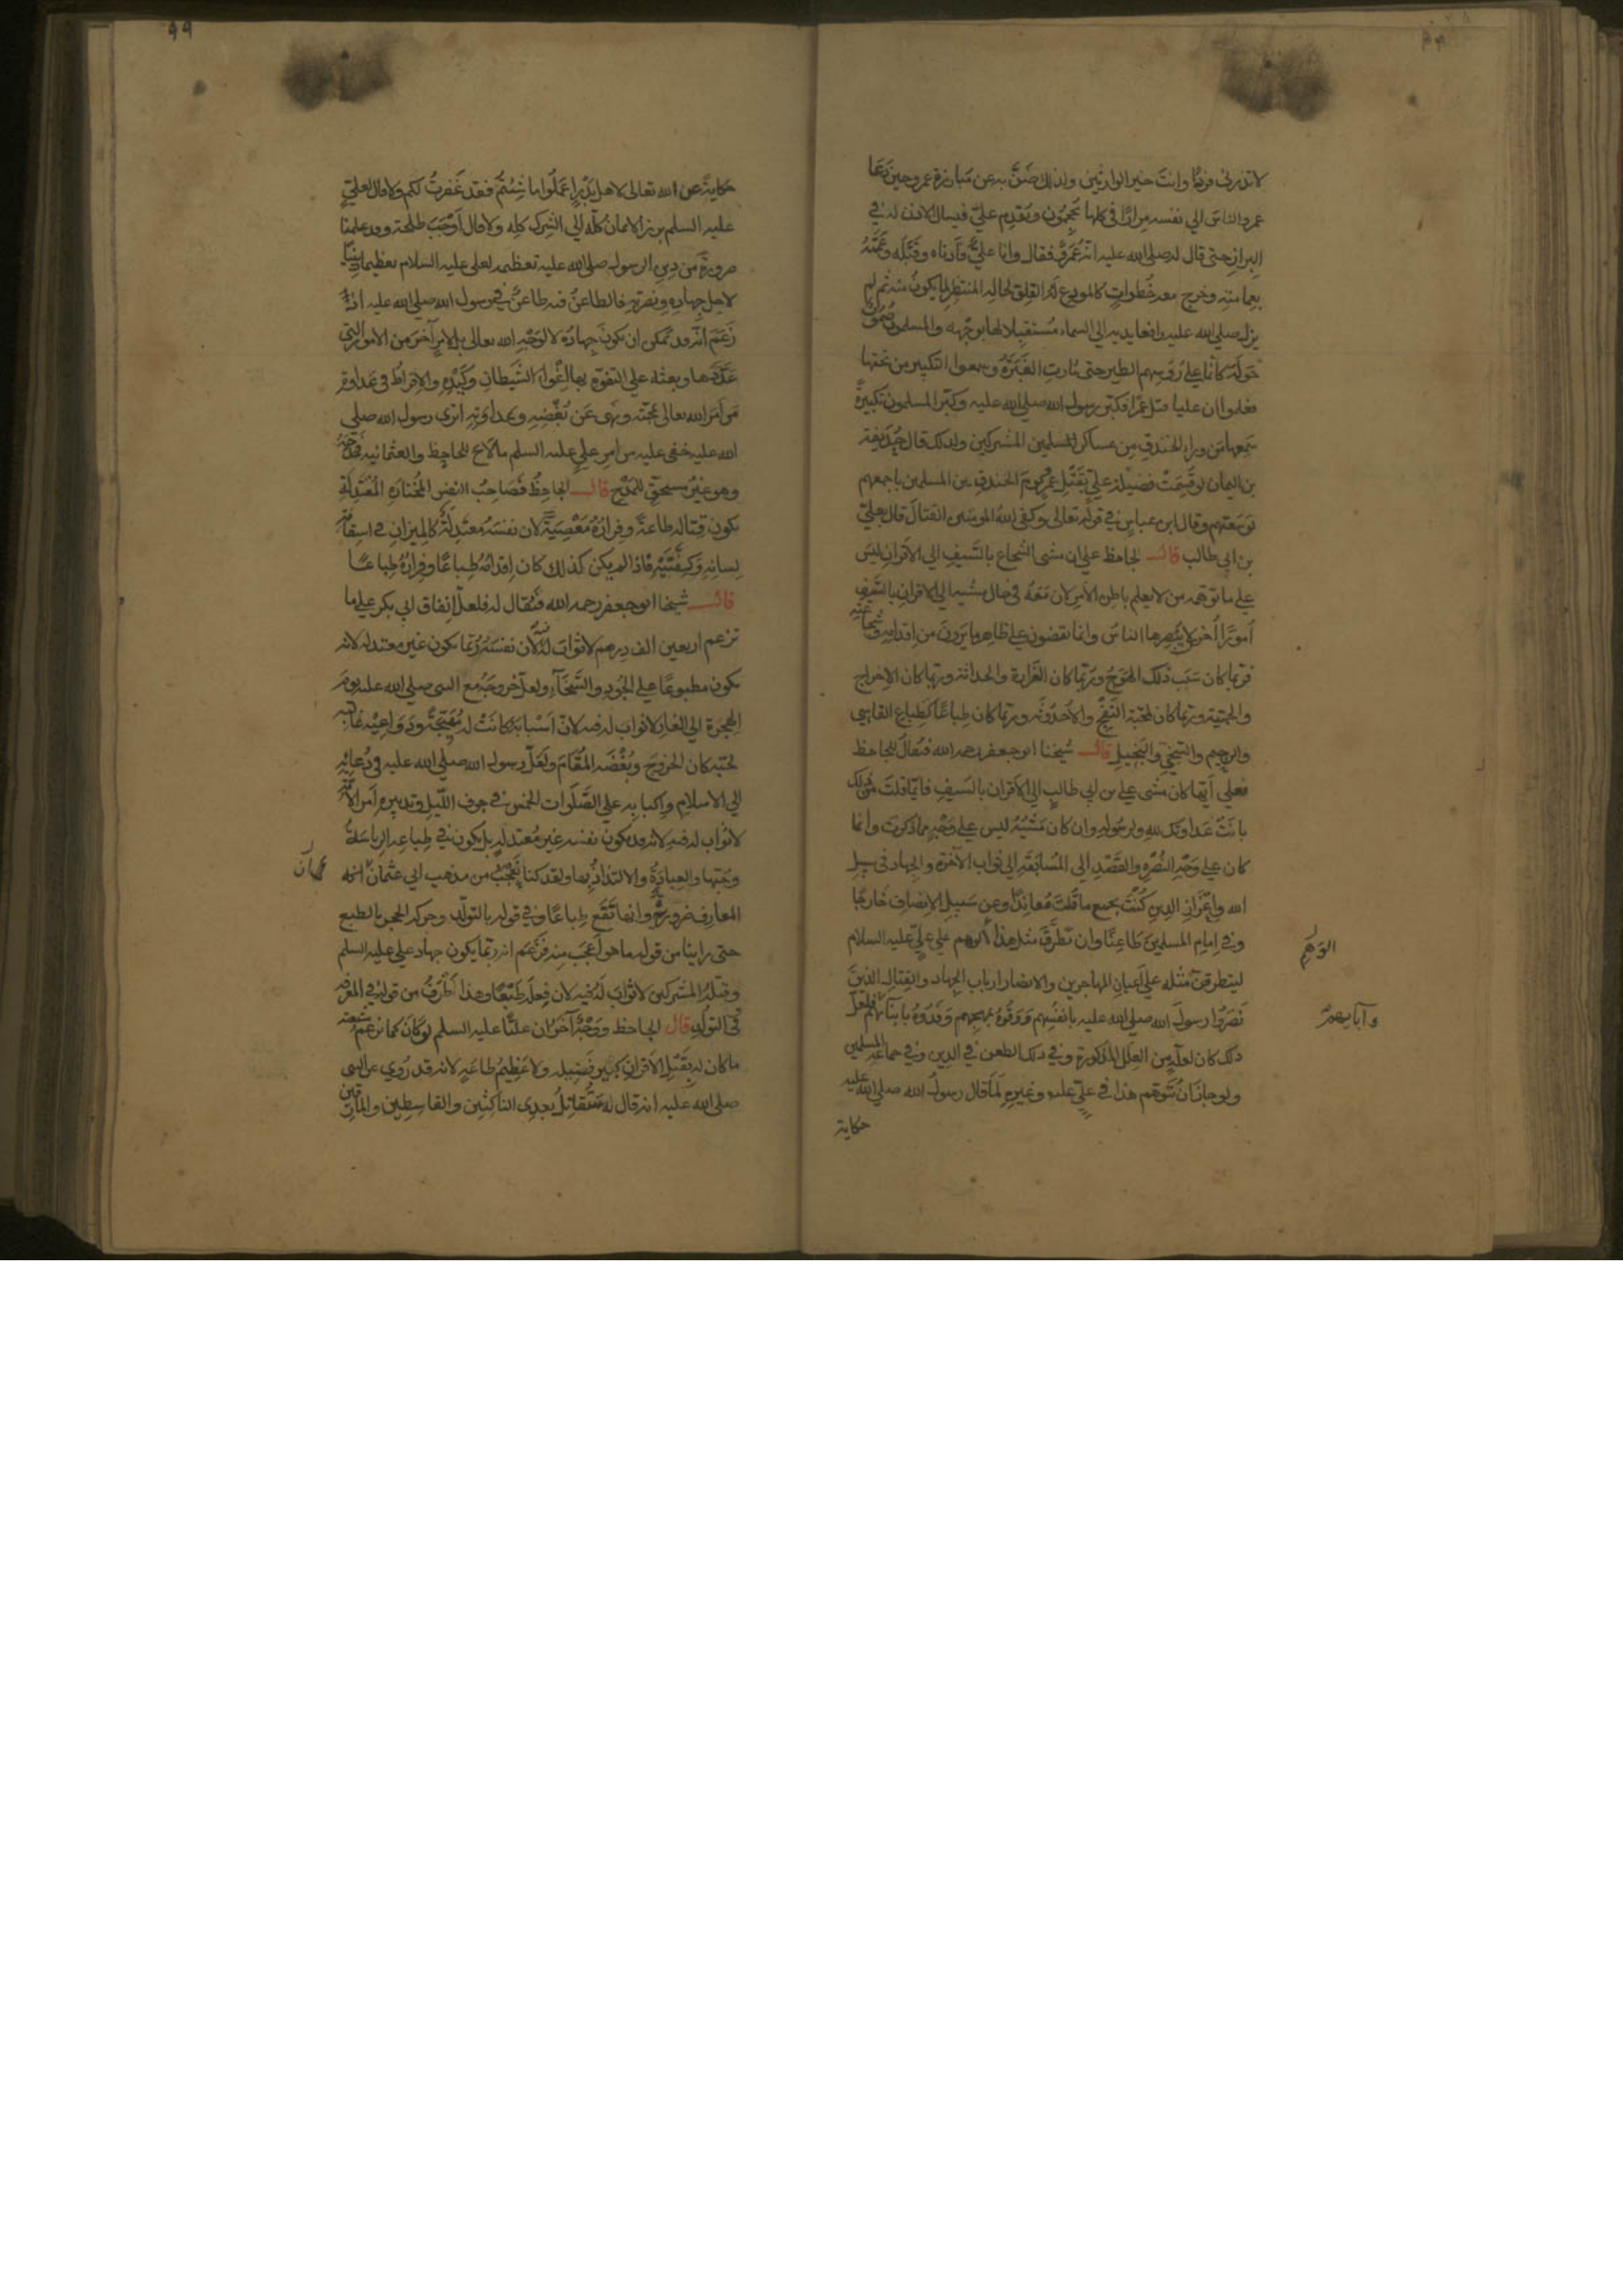 لا تذرني فردًا وانت خير الوارثين ولذلك ضنّ به عن مبارزة عمرو حين دعا
عمرو الناس الي نفسه مرارًا في كلها يحجمون ويقدم عليّ فيسال الاذن له في
البراز حتى قال له صلى الله عليه انه عمرو فقال وانا عليّ فأدناه وقبّله وعمّمه
بعمامته وخرج معه خطوات كالمودع له القلق لحاله المنتظر لما يكون منه ثم لم
يزل صلي الله عليه رافعا يديه الي السماء مستقبلا لها بوجهه والمسلمون صموت
حوله كانما علي رؤسهم الطير حتى ثارت الغبرة وسمعوا التكبير من تحتها
فعلموا ان عليا قتل عمرا فكبر رسول الله صلى الله عليه وكبر المسلمون تكبيرة
سمعها من وراء الخندق من عساكر المشركين ولذلك قال حذيفة
بن اليمان لو قسمت فضيلة علي بقتل عمرو يوم الخندق بين المسلمين باجمعهم
لوسعتهم وقال ابن عباس في قوله تعالى وكفى الله المومنين القتال قال بعليّ
بن ابي طالب قال الجاحظ علي ان مشى الشجاع بالسيف الي الاقران ليس
علي ما توهمه من لا يعلم باطن الامر لان معه في حال مشيه الي الاقران بالسيف
أمورًا أخر لا يبصرها الناس وانما يقضون علي ظاهر ما يرون من اقدامه وشجاعته
فربما كان سبب ذلك الهوج وربما كان الغرارة والحداثة وربما كان الاحراج
والحمية وربما كان لمحبة النفج والاحدوثة وربما كان طباعًا كطباع القاسي
والرحيم والسخي والبخيل قال شيخنا ابو جعفر رحمه الله فيقال للجاحظ
فعلي أيها كان مشى علي بن ابي طالب الي الاقران بالسيف فايما قلت من ذلك
بانت عداوتك لله ولرسوله وان كان مشيه ليس علي وجه مما ذكرت وانما
كان علي وجه النصرة والقصد الي المسابقة الي ثواب الآخرة والجهاد في سبيل
الله واعزاز الدين كنت بجميع ما قلت معاندًا وعن سبيل الانصاف خارجًا
وفي امام المسلمين طاعنًا وان تطرق مثل هذا الوهم علي عليّ عليه السلام
الوهم
ليتطرقن مثله علي أعيان المهاجرين والانصار ارباب الجهاد والقتال الذين
نصروا رسول الله صلى الله عليه بانفسهم ووقوه بمهجهم وفدوه بابنائهم فلعل
وآبايهم
ذلك كان لعلة من العلل المذكورة وفي ذلك الطعن في الدين وفي جماعة المسلمين
ولو جاز ان يتوهم هذا في عليّ عليه وغيره لما قال رسول الله صلي الله عليه
حكاية
٩٩
حكاية عن الله تعالى لاهل بدر اعملوا ما شئتم فقد غفرت لكم ولا قال لعليّ
عليه السلم برز الايمان كله الي الشرك كله ولا قال أوجب طلحة وقد علمنا
ضرورة من دين الرسول صلى الله عليه تعظيمه لعلي عليه السلام تعظيما دينيًا
لاجل جهاده ونصرته فالطاعن فيه طاعن في رسول الله صلى الله عليه اذ
زعم أنه قد يمكن ان يكون جهاده لا لوجه الله تعالى بل لامر آخر من الامور التي
عددها وبعثه علي التفوه بها اغواء الشيطان وكيده والافراط في عداوة
من أمر الله تعالى بمحبته ونهى عن بغضه وعداوته اترى رسول الله صلى
الله عليه خفي عليه من امر علي عليه السلم ما لاح للجاحظ والعثمانية فمدحه
وهو غير مستحق للمدح قال الجاحظ فصاحب النفس المختارة المعتدلة
يكون قتاله طاعة وفراره معصية لان نفسه معتدلة كالميزان في استقامة
لسانه وكفتيه فاذا لم يكن كذلك كان اقدامه طباعًا وفراره طباعًا
قال شيخنا ابو جعفر رحمه الله فيقال له فلعل انفاق ابي بكر علي ما
تزعم اربعين الف درهم لا ثواب له لان نفسه ربما يكون غير معتدلة لانه
يكون مطبوعًا علي الجود والسخاء ولعل خروجه مع النبى صلي الله عليه يوم
الهجرة الي الغار لا ثواب له فيه لان اسبابه كانت له مهيجة ودواعيه غالبة
لمحبته كان الخروج وبغضه المقام ولعل رسول الله صلى الله عليه في دعائه
الي الاسلام واكبابه علي الصلوات الخمس في جوف الليل وتدبيره أمر الأمة
لا ثواب له فيه لانه قد يكون نفسه غير معتدلة بل يكون في طباعه الرياسة
وحبها والعبادة والالتذاذ بها ولقد كنا نعجب من مذهب ابي عثمان
أن
المعارف ضرورية وانها تقع طباعًا وفي قوله بالتولد وحركة الحجر بالطبع
حتى راينا من قوله ما هو أعجب منه فزعم انه ربما يكون جهاد علي عليه السلم
وقتله المشركين لا ثواب له فيه لان فعله طبعًا وهذا أطرف من قوله في المعرفة
وفي التولد قال الجاحظ ووجه آخر ان عليًا عليه السلم لو كان كما تزعم شيعته
ما كان له بقتل الاقران كبير فضيلة ولا عظيم طاعة لانه قد روي عن النبي
صلى الله عليه انه قال له ستقاتل بعدي الناكثين والقاسطين والمارقين